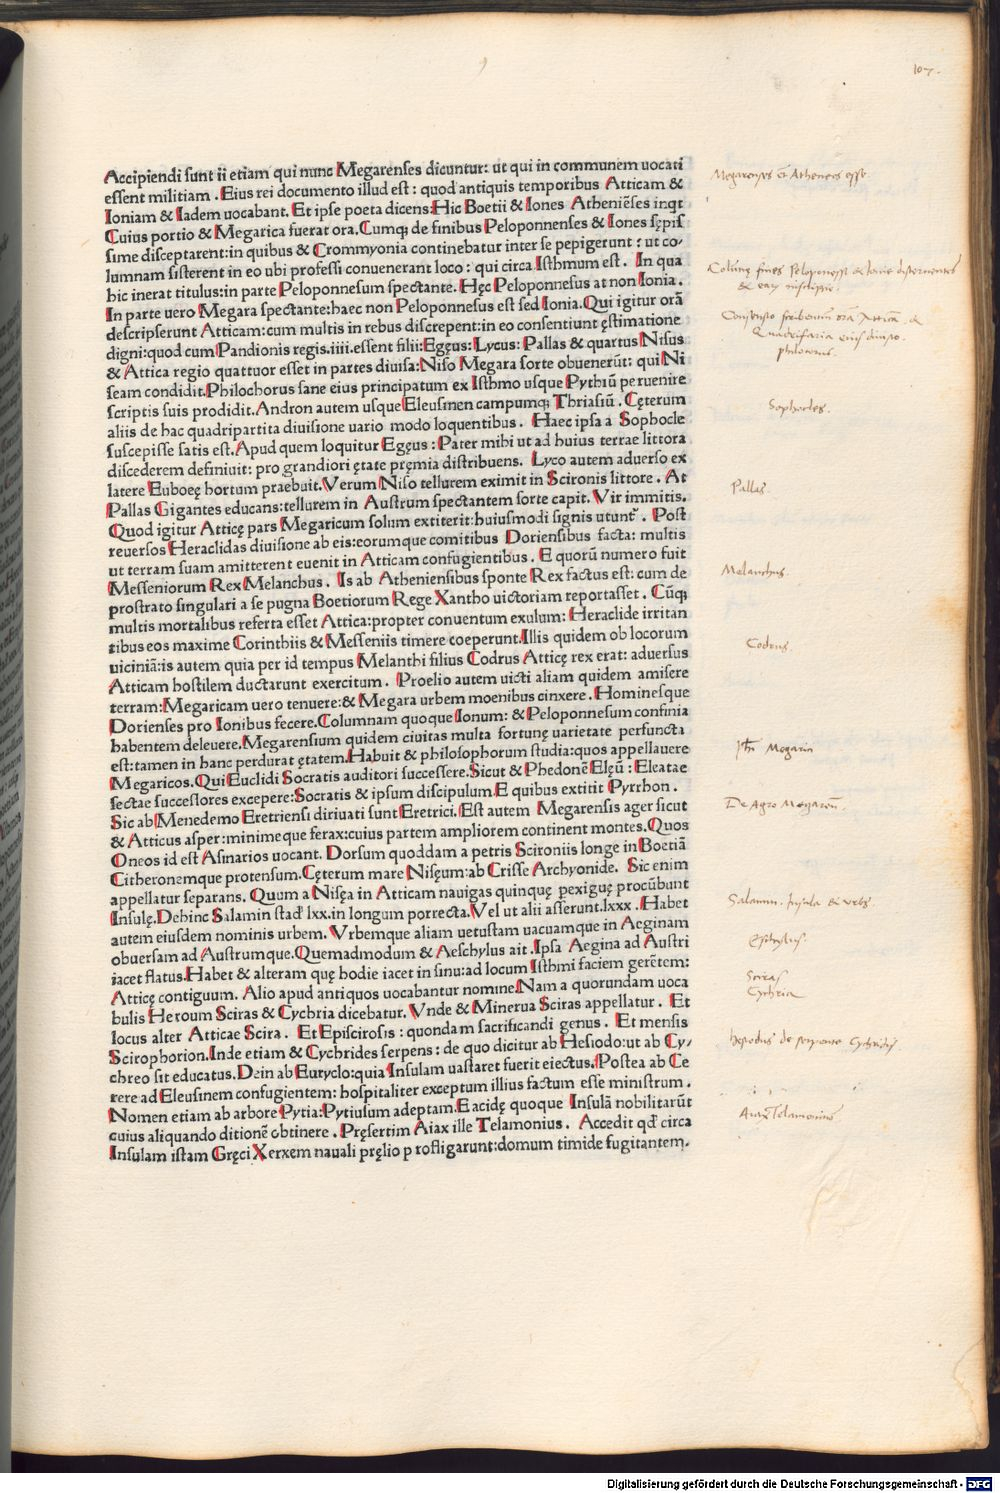 107.
Accipiendi sunt ii etiam qui nunc Megarenses dicuntur: ut qui in communem uocati
essent militiam . Eius rei documento illud est : quod antiquis temporibus Atticam &
Ioniam & Iadem uocabant. Et ipse poeta dicens: Hic Boetii & Iones Atheniẽses inqt
Cuius portio & Megarica fuerat ora. Cumq; de finibus Peloponnenses & Iones sępis
sime disceptarent: in quibus & Crommyonia continebatur inter se pepigerunt : ut co/
lumnam sisterent in eo ubi professi conuenerant loco : qui circa Isthmum est . In qua
hic inerat titulus: in parte Peloponnesum spectante. Hęc Peloponnesus at non Ionia .
In parte uero Megara spectante: haec non Peloponnesus est sed Ionia. Qui igitur orã
descripserunt Atticam: cum multis in rebus discrepent: in eo consentiunt ęstimatione
digni: quod cum Pandionis regis .iiii. essent filii: Egęus: Lycus: Pallas & quartus Nisus
& Attica regio quattuor esset in partes diuisa: Niso Megara sorte obuenerũt: qui Ni
seam condidit. Philochorus sane eius principatum ex Isthmo usque Pythiũ peruenire
scriptis suis prodidit. Andron autem usque Eleusinen campumq; Thriasiũ . Cęterum
aliis de hac quadripartita diuisione uario modo loquentibus . Haec ipsa a Sophocle
suscepisse satis est. Apud quem loquitur Egęus : Pater mihi ut ad huius terrae littora
discederem definiuit: pro grandiori ętate pręmia distribuens. Lyco autem aduerso ex
latere Euboeę hortum praebuit. Verum Niso tellurem eximit in Scironis littore . At
Pallas Gigantes educans: tellurem in Austrum spectantem sorte capit. Vir immitis.
Quod igitur Atticę pars Megaricum solum extiterit: huiusmodi signis utunt᷑ . Post
reuersos Heraclidas diuisione ab eis: eorumque comitibus Doriensibus facta: multis
ut terram suam amitterent euenit in Atticam confugientibus . E quorũ numero fuit
Messeniorum Rex Melanchus . Is ab Atheniensibus sponte Rex factus est: cum de
prostrato singulari a se pugna Boetiorum Rege Xantho uictoriam reportasset . Cũq;
multis mortalibus referta esset Attica: propter conuentum exulum: Heraclide irritan
tibus eos maxime Corinthiis & Messeniis timere coeperunt. Illis quidem ob locorum
uiciniã: is autem quia per id tempus Melanthi filius Codrus Atticę rex erat: aduersus
Atticam hostilem ductarunt exercitum . Proelio autem uicti aliam quidem amisere
terram: Megaricam uero tenuere: & Megara urbem moenibus cinxere . Hominesque
Dorienses pro Ionibus fecere. Columnam quoque Ionum: & Peloponnesum confinia
habentem deleuere. Megarensium quidem ciuitas multa fortunę uarietate perfuncta
est: tamen in hanc perdurat ętatem. Habuit & philosophorum studia: quos appellauere
Megaricos. Qui Euclidi Socratis auditori successere. Sicut & Phedonẽ Elęũ : Eleatae
sectae successores excepere: Socratis & ipsum discipulum. E quibus extitit Pyrrhon .
Sic ab Menedemo Eretriensi diriuati sunt Eretrici. Est autem Megarensis ager sicut
& Atticus asper: minimeque ferax: cuius partem ampliorem continent montes. Quos
Oneos id est Asinarios uocant. Dorsum quoddam a petris Scironiis longe in Boetiã
Citheronemque protensum. Cęterum mare Nisęum: ab Crisse Archyonide. Sic enim
appellatur separans. Quum a Nisęa in Atticam nauigas quinquę pexiguę procũbunt
Insulę. Dehinc Salamin stad' lxx. in longum porrecta. Vel ut alii asserunt .lxxx . Habet
autem eiusdem nominis urbem. Vrbemque aliam uetustam uacuamque in Aeginam
obuersam ad Austrumque. Quemadmodum & Aeschylus ait . Ipsa Aegina ad Austri
iacet flatus. Habet & alteram quę hodie iacet in sinu: ad locum Isthmi faciem gerẽtem:
Atticę contiguum. Alio apud antiquos uocabantur nomine. Nam a quorundam uoca
bulis Heroum Sciras & Cychria dicebatur. Vnde & Minerua Sciras appellatur . Et
locus alter Atticae Scira . Et Episcirosis : quondam sacrificandi genus . Et mensis
Scirophorion. Inde etiam & Cychrides serpens : de quo dicitur ab Hesiodo: ut ab Cy/
chreo sit educatus. Dein ab Euryclo: quia Insulam uastaret fuerit eiectus. Postea ab Ce
rere ad Eleusinem confugientem: hospitaliter exceptum illius factum esse ministrum .
Nomen etiam ab arbore Pytia: Pytiusum adeptam. Eacidę quoque Insulã nobilitarũt
cuius aliquando ditionẽ obtinere . Pręsertim Aiax ille Telamonius . Accedit qđ circa
Insulam istam Gręci Xerxem nauali pręlio profligarunt: domum timide fugitantem.
Megarenses et Athenees esse.
Sophocles.
Pallas.
Melanchus.
Codrus
Phi Megarici
De Agro Megarens.
Salamin. Insula & urbs.
Sciras
Cychria
Hesiodus de serpente Cychridis
Aiax Telamonius
Digitalisierung gefördert durch die Deutsche Forschungsgemeinschaft - DFG